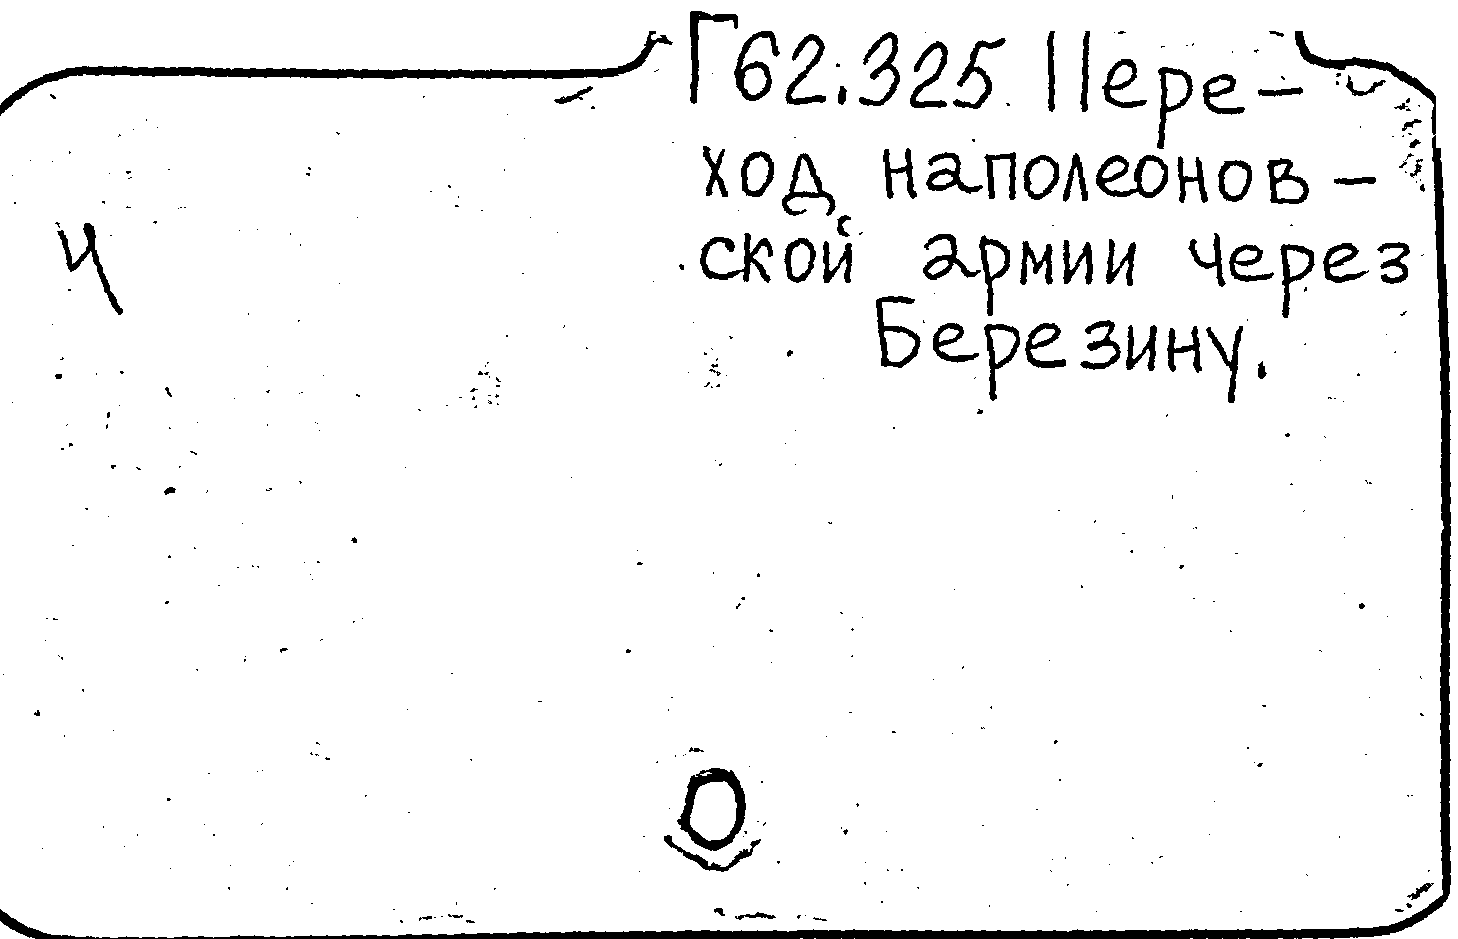 Г62.325 Пере-
ход наполеонов-
ской армии через
Березину.
Ч